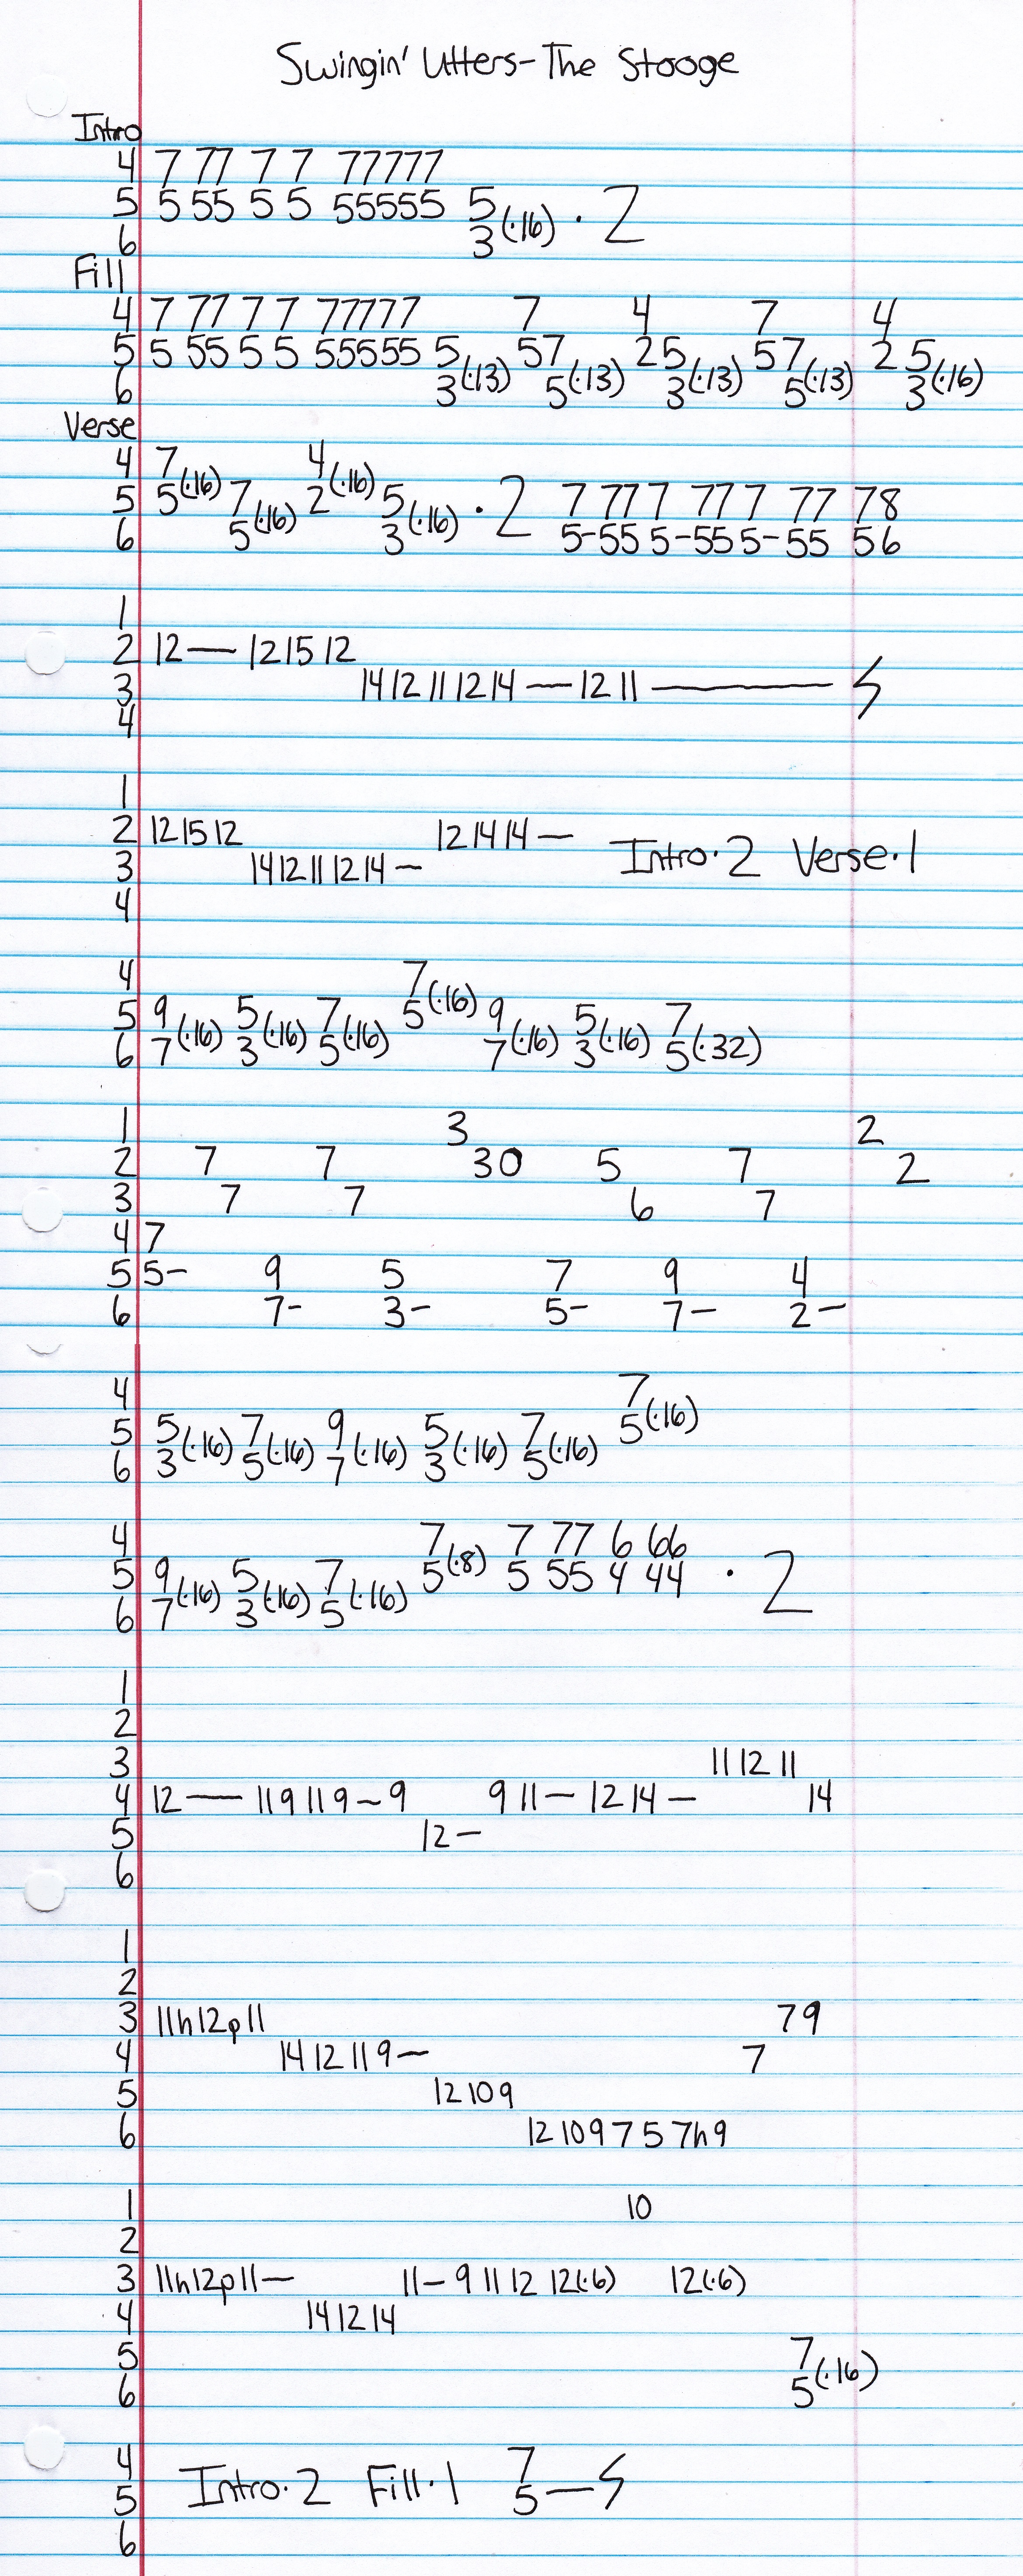 Swingin' Utters-The Stooge
Intro
4 7 77 7 7 77777
5 5 55 5 5 55555 5
6 3(·16) · 2
Fill
4 7 77 7 7 77777 7 4 7 4
5 5 55 5 5 55555 5 57 25 57 2 5
6 3(·13) 5(·13) 3(·13) 5(·13) 3(·16)
Verse
4 7 4
5 5(·16) 7 2(·16) 5 · 2 7 777 777 7 77 78
6 5(·16) 3(·16) 5-55 5-55 5-55 56
1
2 12— 121512
3 1412111214—1211— ϟ
4
1
2 121512 121414—
3 1412111214— Intro·2 Verse·1
4
4 7
5 9 5 7 5(·16) 9 5 7
6 7(·16) 3(·16) 5(·16) 7(·16) 3(·16) 5(·32)
1 3 2
2 7 7 30 5 7 2
3 7 7 6 7
4 7
5 5- 9 5 7 9 4
6 7- 3- 5- 7- 2-
4 7
5 5 7 9 5 7 5(·16)
6 3(·16) 5(·16) 7(·16) 3(·16) 5(·16)
4 7 7 77 6 66
5 9 5 7 5(·8) 5 55 4 44 · 2
6 7(·16) 3(·16) 5(·16)
1
2
3 11 12 11
4 12— 119119-9 9 11- 12 14- 14
5 12-
6
1
2
3 11h12p11 79
4 14 12 11 9- 7
5 12 10 9
6 12 10 9 7 5 7h9
1 10
2
3 11h12p11— 11-9 11 12 12(·6) 12(·6)
4 14 12 14
5 7
6 5(·16)
4 7
5 Intro·2 Fill·1 5—ϟ
6